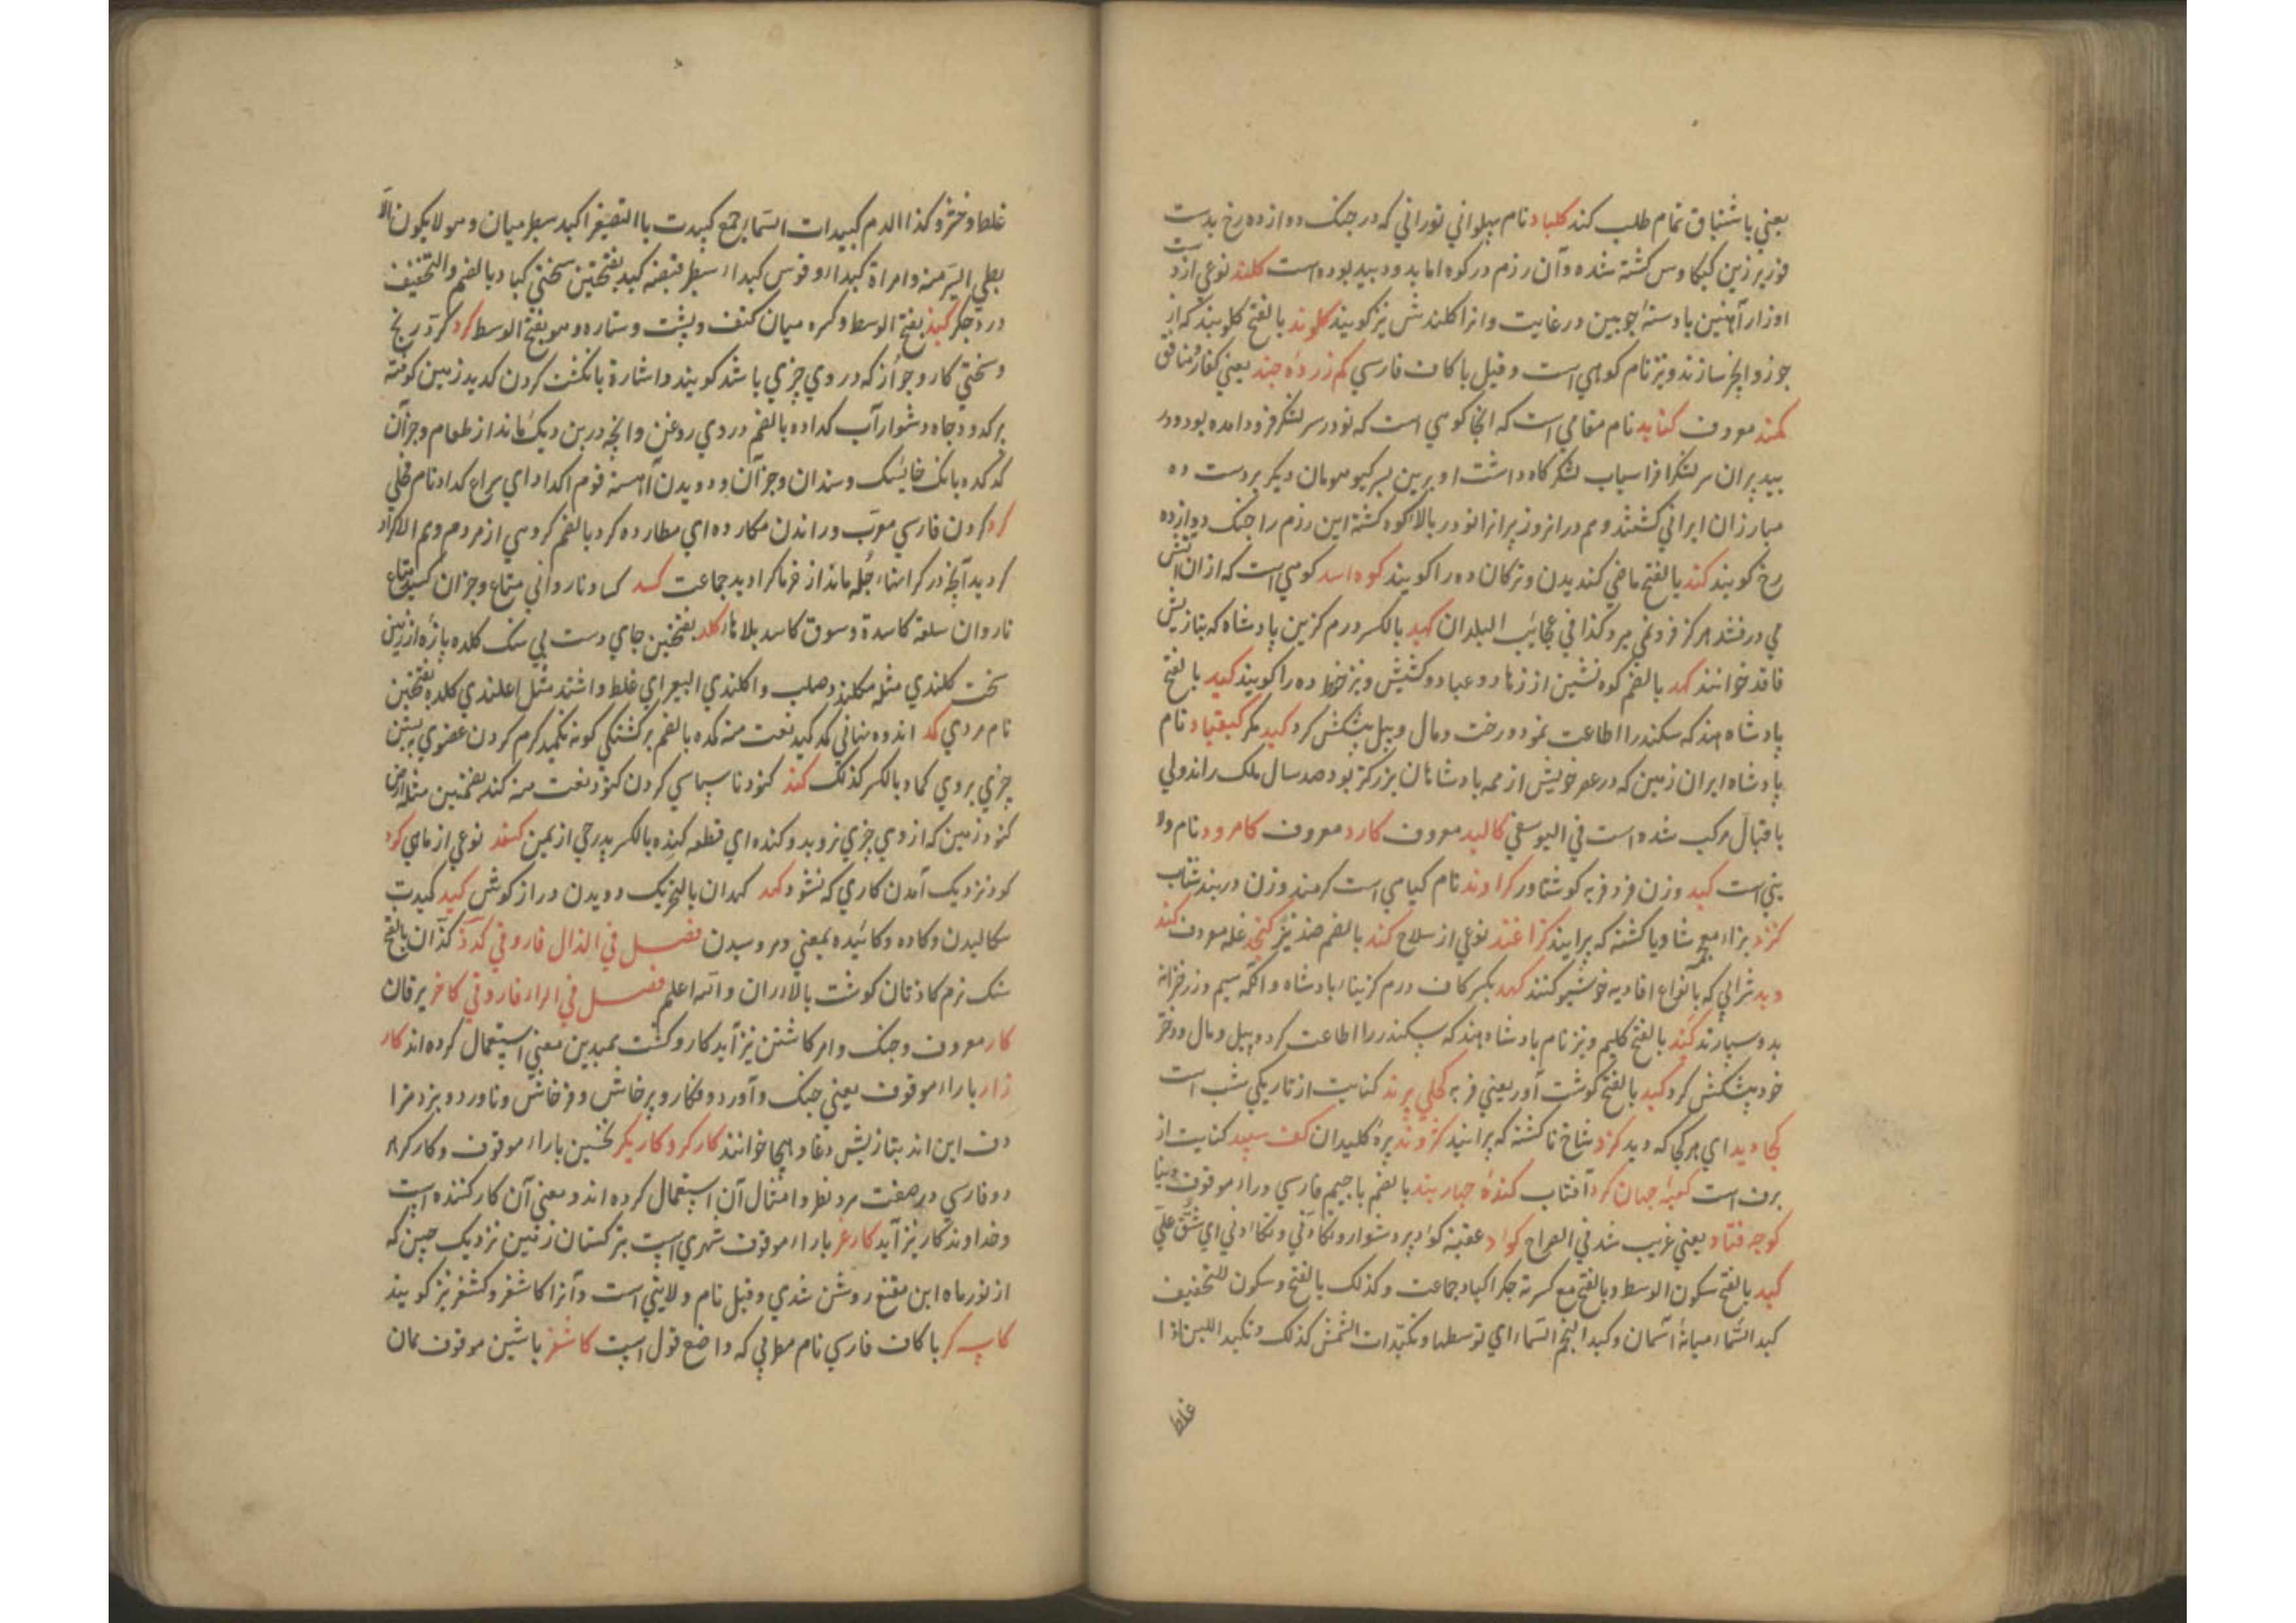 یعنی باشتیاق تمام طلب کند کلباد نام پهلوانی تورانی که در جنک دوازده رخ بدست
فریبرز بن کیکاوس کشته شده و آن رزم در کوه اما بد و دبید بوده است کلند نوعی از
اوزار آهنین با دسته چوبین در غایت و انرا کلندش نیز کویند کلوند بالفتح کلوبند که از
جوز و انجر سازند و نیز نام کوهی است و قیل با کاف فارسی کم زر ده چند یعنی کفار منافق
کمند معروف کنابد نام مقامی است که انجا کوهی است که نوذر سر لشکر فرود امده بود و در
بید پیران سر لشکر افراسیاب لشکر کاه داشت او برین سر کیو همومان دیکر بر دست ده
مبارزان ایرانی کشتند و هم در انروز پیرانرا نوذر بالا کوه کشته این رزم را جنک دوازده
رخ کویند کند بالفتح ماضی کندیدن و ترکان ده را کویند کوه اسد کوهی است که از ان آتش
می درفشد هر کز فرو نمی میرد کذا فی عجایب البلدان کهبد بالکسر درم کزین پادشاه که بتازیش
ناقد خوانند کهد بالضم کوه نشین از زهاد و عباد و کشیش و نیز خوط ده را کویند کید بالفتح
پادشاه هند که سکندر را اطاعت نمود و رخت و مال و پیل پیشکش کرد کید مکر کیقباد نام
پادشاه ایران زمین که در عصر خویش از همه پادشاهان بزرکتر بود صد سال ملک راند ولی
باقبال مرکب شده است فی الیوسفی کالبد معروف کارد معروف کامرود نام ولا
یتی است کبد وزن فرد فربه کوشتاور کراوند نام کیاهی است کرمند وزن دربند شتاب
کزد بزاء معجم شاویا کشته که پرایند کزاغند نوعی از سلاح کند بالضم ضد تیز کنجد غله معروف کند
وید شرابی که بانواع افادیه خوشبو کنند کهبد بکسر کاف درم کزینا پادشاه و انکه سیم و زر خزانه
بدو سپارند کند بالفتح کلیم و نیز نام پادشاه هند که سکندر را اطاعت کرد و پیل و مال و دختر
خود پیشکش کرد کبد بالفتح کوشت آور یعنی فربه کحلی پرند کنایت از تاریکی شب است
کجا دید ای هر کجا که دید کزد شاخ تا کشته که پرایند کزوند پره کلیدان کف سپید کنایت از
برف است کعبه جهان کرد آفتاب کنده جهار بند بالضم با جیم فارسی و راء موقوف دنیا
کوچه فتاد یعنی غریب شد فی الصراح کواد عقبة کواد بر دشوار و تکادنی و تکاءدنی ای شق علی
کبد بالفتح سکون الوسط و بالفتح مع کسرته جکر اکباد جماعت و کذلک بالفتح و سکون للتخفیف
کبد السماء میانهٔ آسمان و کبد النجم السماء ای توسطها و تکبدات الشمش کذلک و تکبد اللبن اذا
غلظ
غلظ و خثر و کذا الدم کبیدات السماء جمع کبیدت باالتصغیر اکبد سطبر میان و هو لا یکون الا
بطی السیر منه و امراة کبداء و قوس کبداء سطبر قبضه کبد بفتحتین سختی کباد بالضم و التخفیف
درد جکر کتد بفتح الوسط و کسره میان کتف و پشت و ستاره و هو بفتح الوسط کرد کرد رنج
و سختی کار و جواز که در وی چزی باشد کویند و اشارة بانکشت کردن کدید زمین کوفته
بر کدود چاه دشوار آب کداده بالضم دردی روغن و انچه در بن دیک ماند از طعام و جز آن
کدکده بانک خایسک و سندان و جز آن و دویدن آهسته قوم اکداد ای سراع کداد نام فحلی
کرد کردن فارسی معرب و راندن مکارده ای مطارده کرد بالضم کروهی از مردم و هم الاکراد
کردید آنچه در کرانهاء جله ماند از خرما کرادید جماعت کسد کساد ناروانی متاع و جز ان کسید متاع
ناروان سلعة کاسدة و سوق کاسد بلا هاء کلد بفتحتین جای درست بی سنک کلده پازه از زمین
سخت کلندی مثله مکلند و صلب و اکلندی البعیر ای غلظ و اشتد مثل اعلندی کلده بفتحتین
نام مردی کمد اندوه نهانی کمد کمید نعت منه کمده بالضم برکشتکی کونه تکمید کرم کردن عضوی به بستن
چزی بروی کماد بالکسر کذلک کند کنود نا سپاسی کردن کنود نعت منه کند بضمتین مثله ارض
کنود زمین که از وی چزی نروید و کنده ای قطعه کنده بالکسر پدر حی از یمن کنند نوعی از ماهی کود
کود نزدیک آمدن کاری که نشود کهد کهدان بالتحریک دویدن دراز کوش کید کیدت
سکالیدن و کاده و کائیده بمعنی و مر و سیدن فصل فی الذال فاروقی کذذ کذان بالفتح
سنک نرم کاذتان کوشت بالاء ران و الله اعلم فصل فی الراء فاروقی کاخر یرقان
کار معروف و جنک و امر کاشتن نیز آید کار و کشت بمبدین معنی استعمال کرده اند کار
زار باراء موقوف یعنی جنک و آورد و فکار و پرخاش و فرخاش و ناورد و نبرد مرا
دف این اند بتازیش دغا و هیجا خوانند کارکر و کاریکر نخستین باراء موقوف و کارکر هر
دو فارسی در صفت مرد نظر و امثال آن استعمال کرده اند و معنی آن کار کننده است
و خداوند کار نیز آید کارغر باراء موقوف شهری است بترکستان زمین نزدیک چین که
از نور ماه ابن مقنع روشن شدی و قیل نام ولایتی است و آنرا کاشغر و کشغر نیز کویند
کاسه کر با کاف فارسی نام مطربی که واضع قول است کاشغر باشین موقوف همان